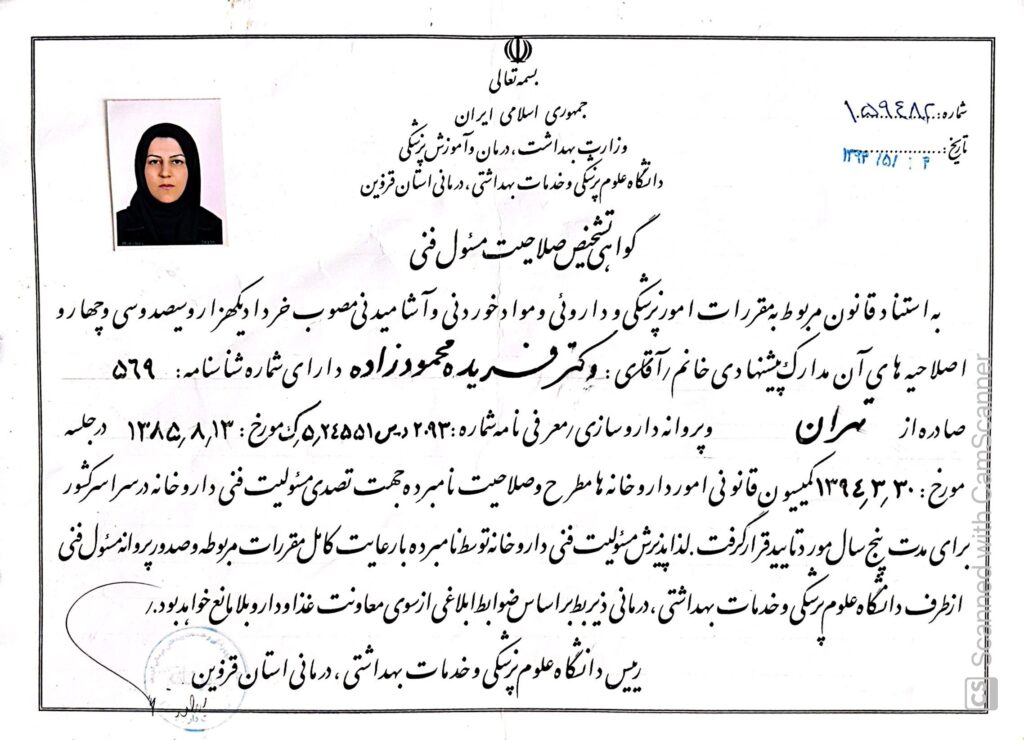 بسمه تعالی
جمهوری اسلامی ایران
وزارت بهداشت، درمان و آموزش پزشکی
دانشگاه علوم پزشکی و خدمات بهداشتی، درمانی استان قزوین
شماره: ۱۰۵۹۴۸۲
تاریخ: ۱۳۹۴/۵/۰۴
گواهی تشخیص صلاحیت مسئول فنی
به استناد قانون مربوط به مقررات امور پزشکی و داروئی و مواد خوردنی و آشامیدنی مصوب خرداد یکهزار و سیصد و سی و چهار و
اصلاحیه های آن مدارک پیشنهادی خانم / آقای: دکتر فریده محمودزاده دارای شماره شناسنامه: ۵۶۹
صادره از تهران و پروانه داروسازی / معرفی نامه شماره: ۲۰۹۳ د پس ۵٫۲۴۵۵۱ ک مورخ: ۱۳۸۵٫۸٫۱۳ در جلسه
مورخ: ۱۳۹۴٫۳٫۳۰ کمیسیون قانونی امور داروخانه ها مطرح و صلاحیت نامبرده جهت تصدی مسئولیت فنی داروخانه در سراسر کشور
برای مدت پنج سال مورد تایید قرار گرفت. لذا پذیرش مسئولیت فنی داروخانه توسط نامبرده با رعایت کامل مقررات مربوطه و صدور پروانه مسئول فنی
از طرف دانشگاه علوم پزشکی و خدمات بهداشتی، درمانی ذیربط بر اساس ضوابط ابلاغی از سوی معاونت غذا و دارو بلامانع خواهد بود./
رییس دانشگاه علوم پزشکی و خدمات بهداشتی، درمانی استان قزوین
CS Scanned with CamScanner